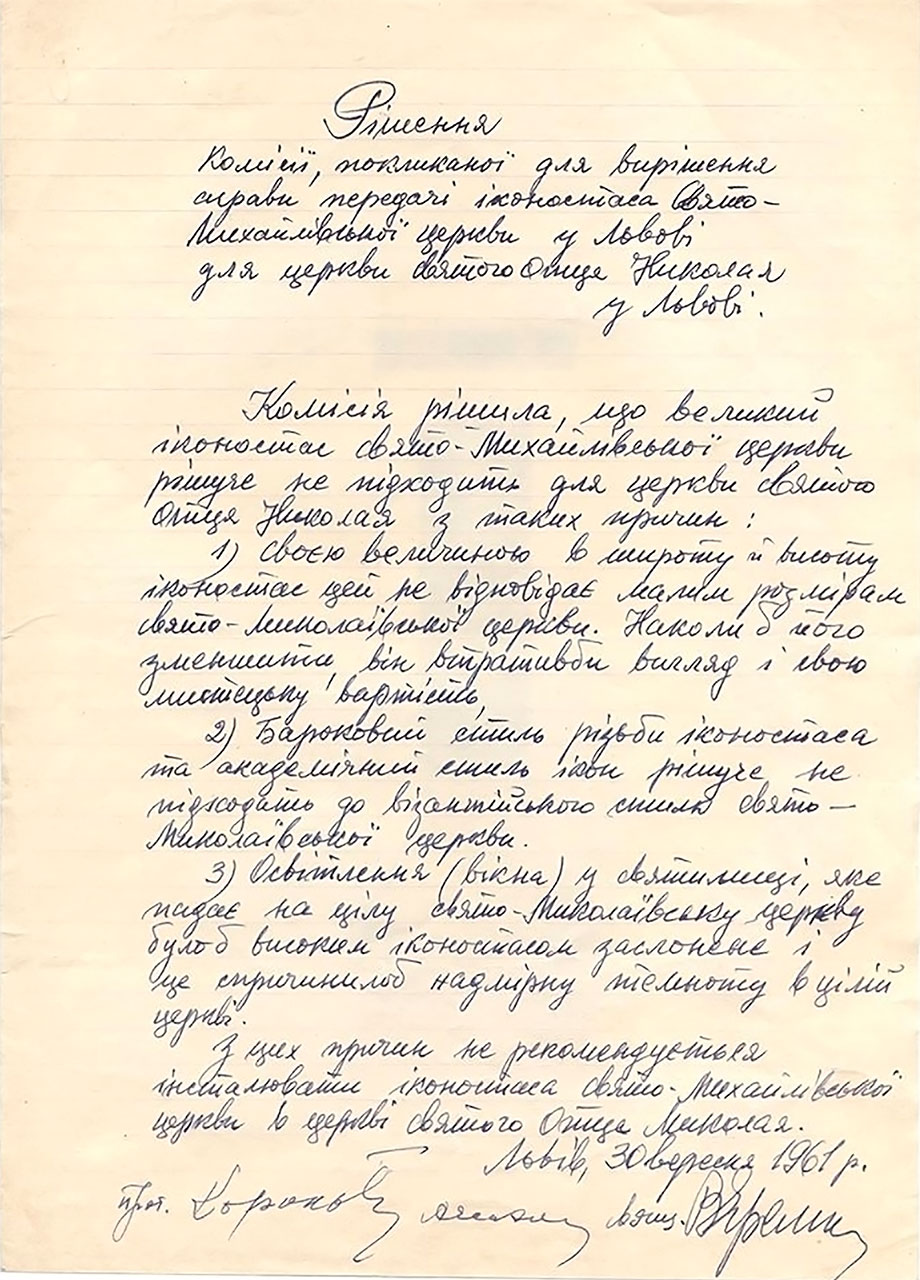 Рішення
Комісії, покликаної для вирішення
справи передачі іконостаса Свято-
Михайлівської церкви у Львові
для церкви святого Отця Николая
у Львові.
Комісія рішила, що великий
іконостас свято-Михайлівської церкви
рішуче не підходить для церкви святого
Отця Николая з таких причин:
1) Своєю величиною в широту й висоту
іконостас цей не відповідає малим розмірам
свято-Миколаївської церкви. Наколи б його
зменшити, він втративби вигляд і свою
мистецьку вартість,
2) Бароковий стиль різьби іконостаса
та академічний стиль ікон рішуче не
підходять до візантійського стилю свято-
Миколаївської церкви.
3) Освітлення (вікна) у святилищі, яке
падає на цілу свято-Миколаївську церкву
було б високим іконостасом заслонене і
це спричинилоб надмірну темноту в цілій
церкві.
З цих причин не рекомендується
інсталювати іконостаса свято-Михайлівської
церкви в церкві святого Отця Миколая.
Львів, 30 вересня 1961 р.
прот. свящ.